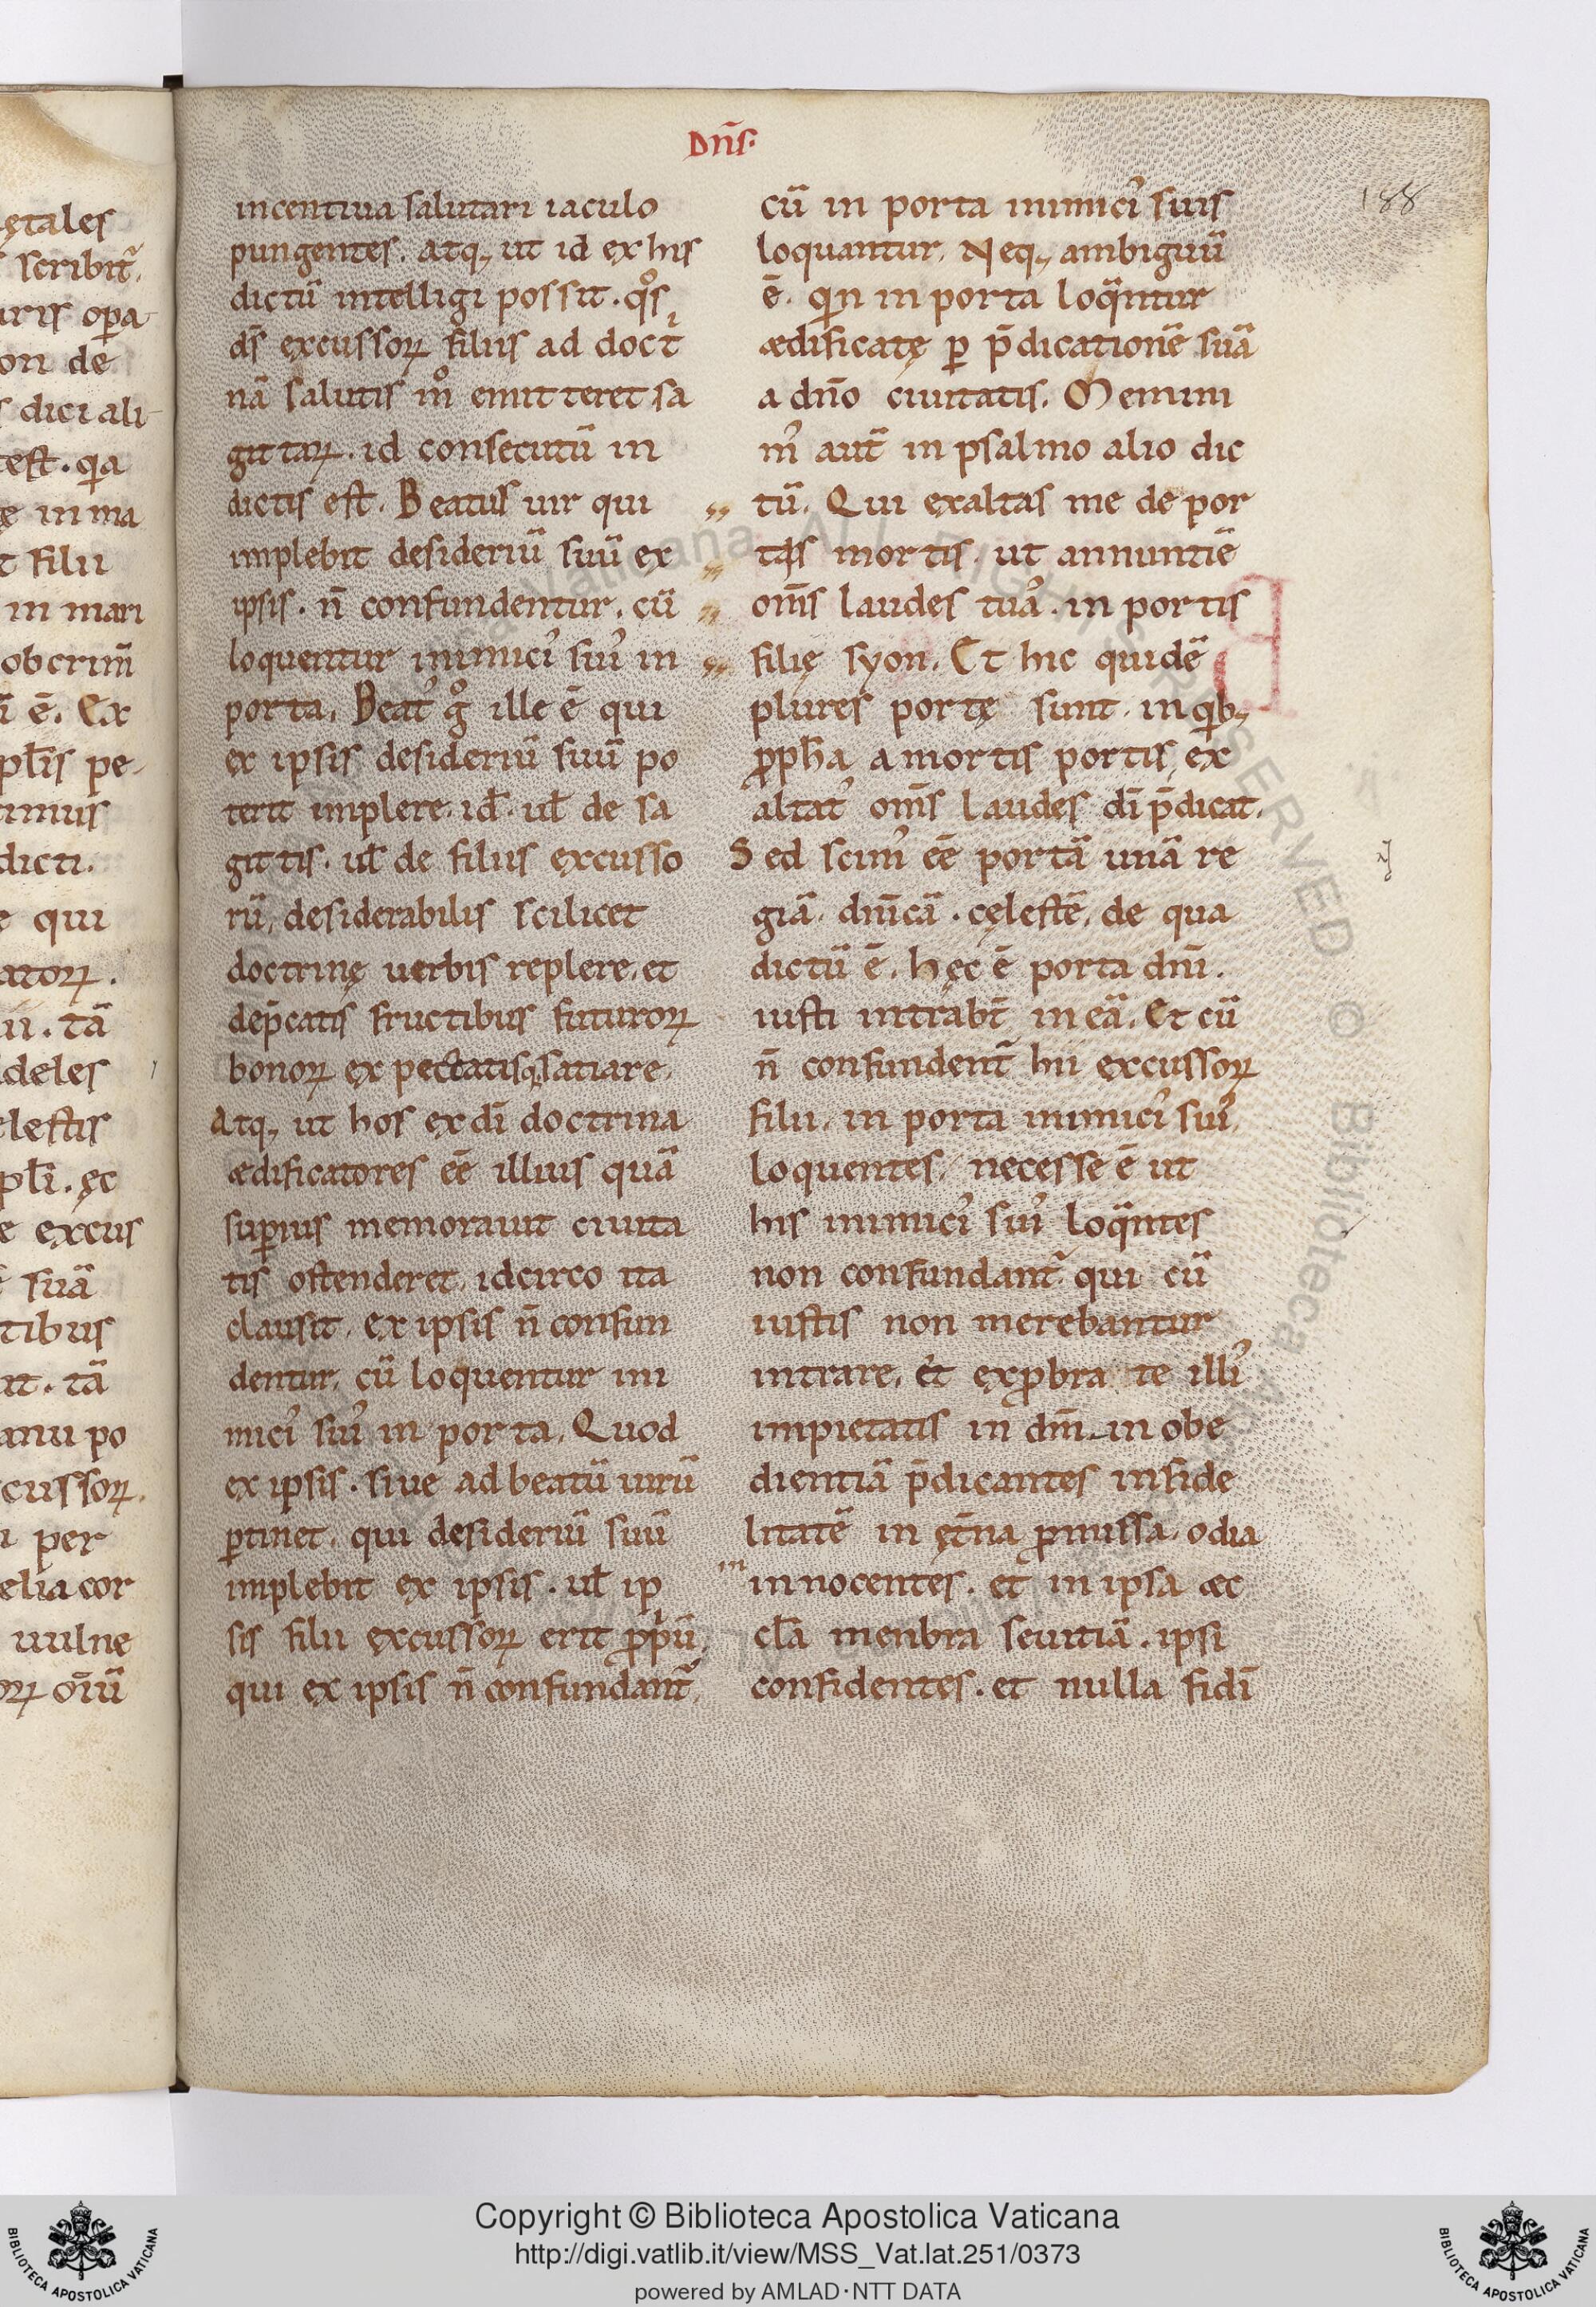 Dn̄s·
188
ętales
scribit᷑.
uris opa
on de
dici ali
test. qͥa
ę in ma
t filii
in mari
ob crim̄
ē. Ex
pl̄is pe
dicti.
e qui
atoꝝ.
ii. tā
deles
lestis
pl̄i. ęc
e excus
suā
tibus
it. tā
anu po
cussoꝝ.
per
elia cor
uulne
oꝝ oīū
incentiua salutari iaculo
pungentes. atq; ut id ex his
dictū intelligi possit. qͦs
ds̄ excussoꝝ filiis ad doctͥ
nā salutis mͦ emitteret sa
gittaꝝ. id consecutū in
dictis est. Beatus uir qui
implebit desideriū suū ex
ipsis. n̄ confundentur. cū
loquentur inimici᾽ sui᾽ in
porta. Beat᾽ gͦ ille ē qui
ex ipsis desideriū suū po
terit implere. id̄. ul̄ de sa
gittis. ul̄ de filiis excusso
rū, desiderabilis scilicet
doctrinę uerbis replere, et
dep̄catis fructibus futuroꝝ
bonoꝝ expectatisq; satiare.
Atq; ut hos ex dī doctrina
ædificatores eē illius quā
suꝑius memorauit ciuita
tis ostenderet, idcirco ita
clausit. ex ipsis n̄ confun
dentur, cū loquentur ini
mici᾽ sui᾽ in porta. Quod
ex ipsis. siue ad beatū uirū
ꝑtinet. qui desideriū suū
implebit ex ipsis. ul̄ ip
sis filii excussoꝝ erit ꝓpͥū,
qui ex ipsis n̄ confundant᷑,
cū in porta inimici᾽ suis
loquantur. Neq; ambiguū
ē. qͥn in porta loqᷓntur
ædificatę ꝑ p̄dicationē suā
a dn̄o ciuitatis. Memini
m᾽ aut̄ in psalmo alio dic
tū. Qui exaltas me de por
tis mortis. ut annuntiē
om̄s laudes tua᾽. in portis
filię syon. Et hic quidē
plures portę sunt. in qͥb;
ꝓph̄a a mortis portis ex
altat᾽ om̄s laudes dī p̄dicat.
Sed scim᾽ eē portā unā re
giā. dn̄icā. cęlestē, de qua
dictū ē. Hęc ē porta dn̄i.
iusti intrabt̄ in eā. Et cū
n̄ confundent᷑ hii excussoꝝ
filii. in porta inimici᾽ sui᾽.
loquentes, necesse ē ut
his inimici᾽ sui᾽ loqᷓntes
non confundant᷑ qui cū
iustis non merebantur
intrare. et exꝓbra te illi᾽
impietatis in dm̄. in obe
dientiā p̄dicantes infide
litatē in ęt̄na ꝓmissa. odia
in innocentes. et in ipsa æc
cl̄a menbra seuitiā. ipsi
confidentes. et nulla fidī
Copyright © Biblioteca Apostolica Vaticana
http://digi.vatlib.it/view/MSS_Vat.lat.251/0373
powered by AMLAD·NTT DATA
BIBLIOTECA APOSTOLICA VATICANA
BIBLIOTECA APOSTOLICA VATICANA